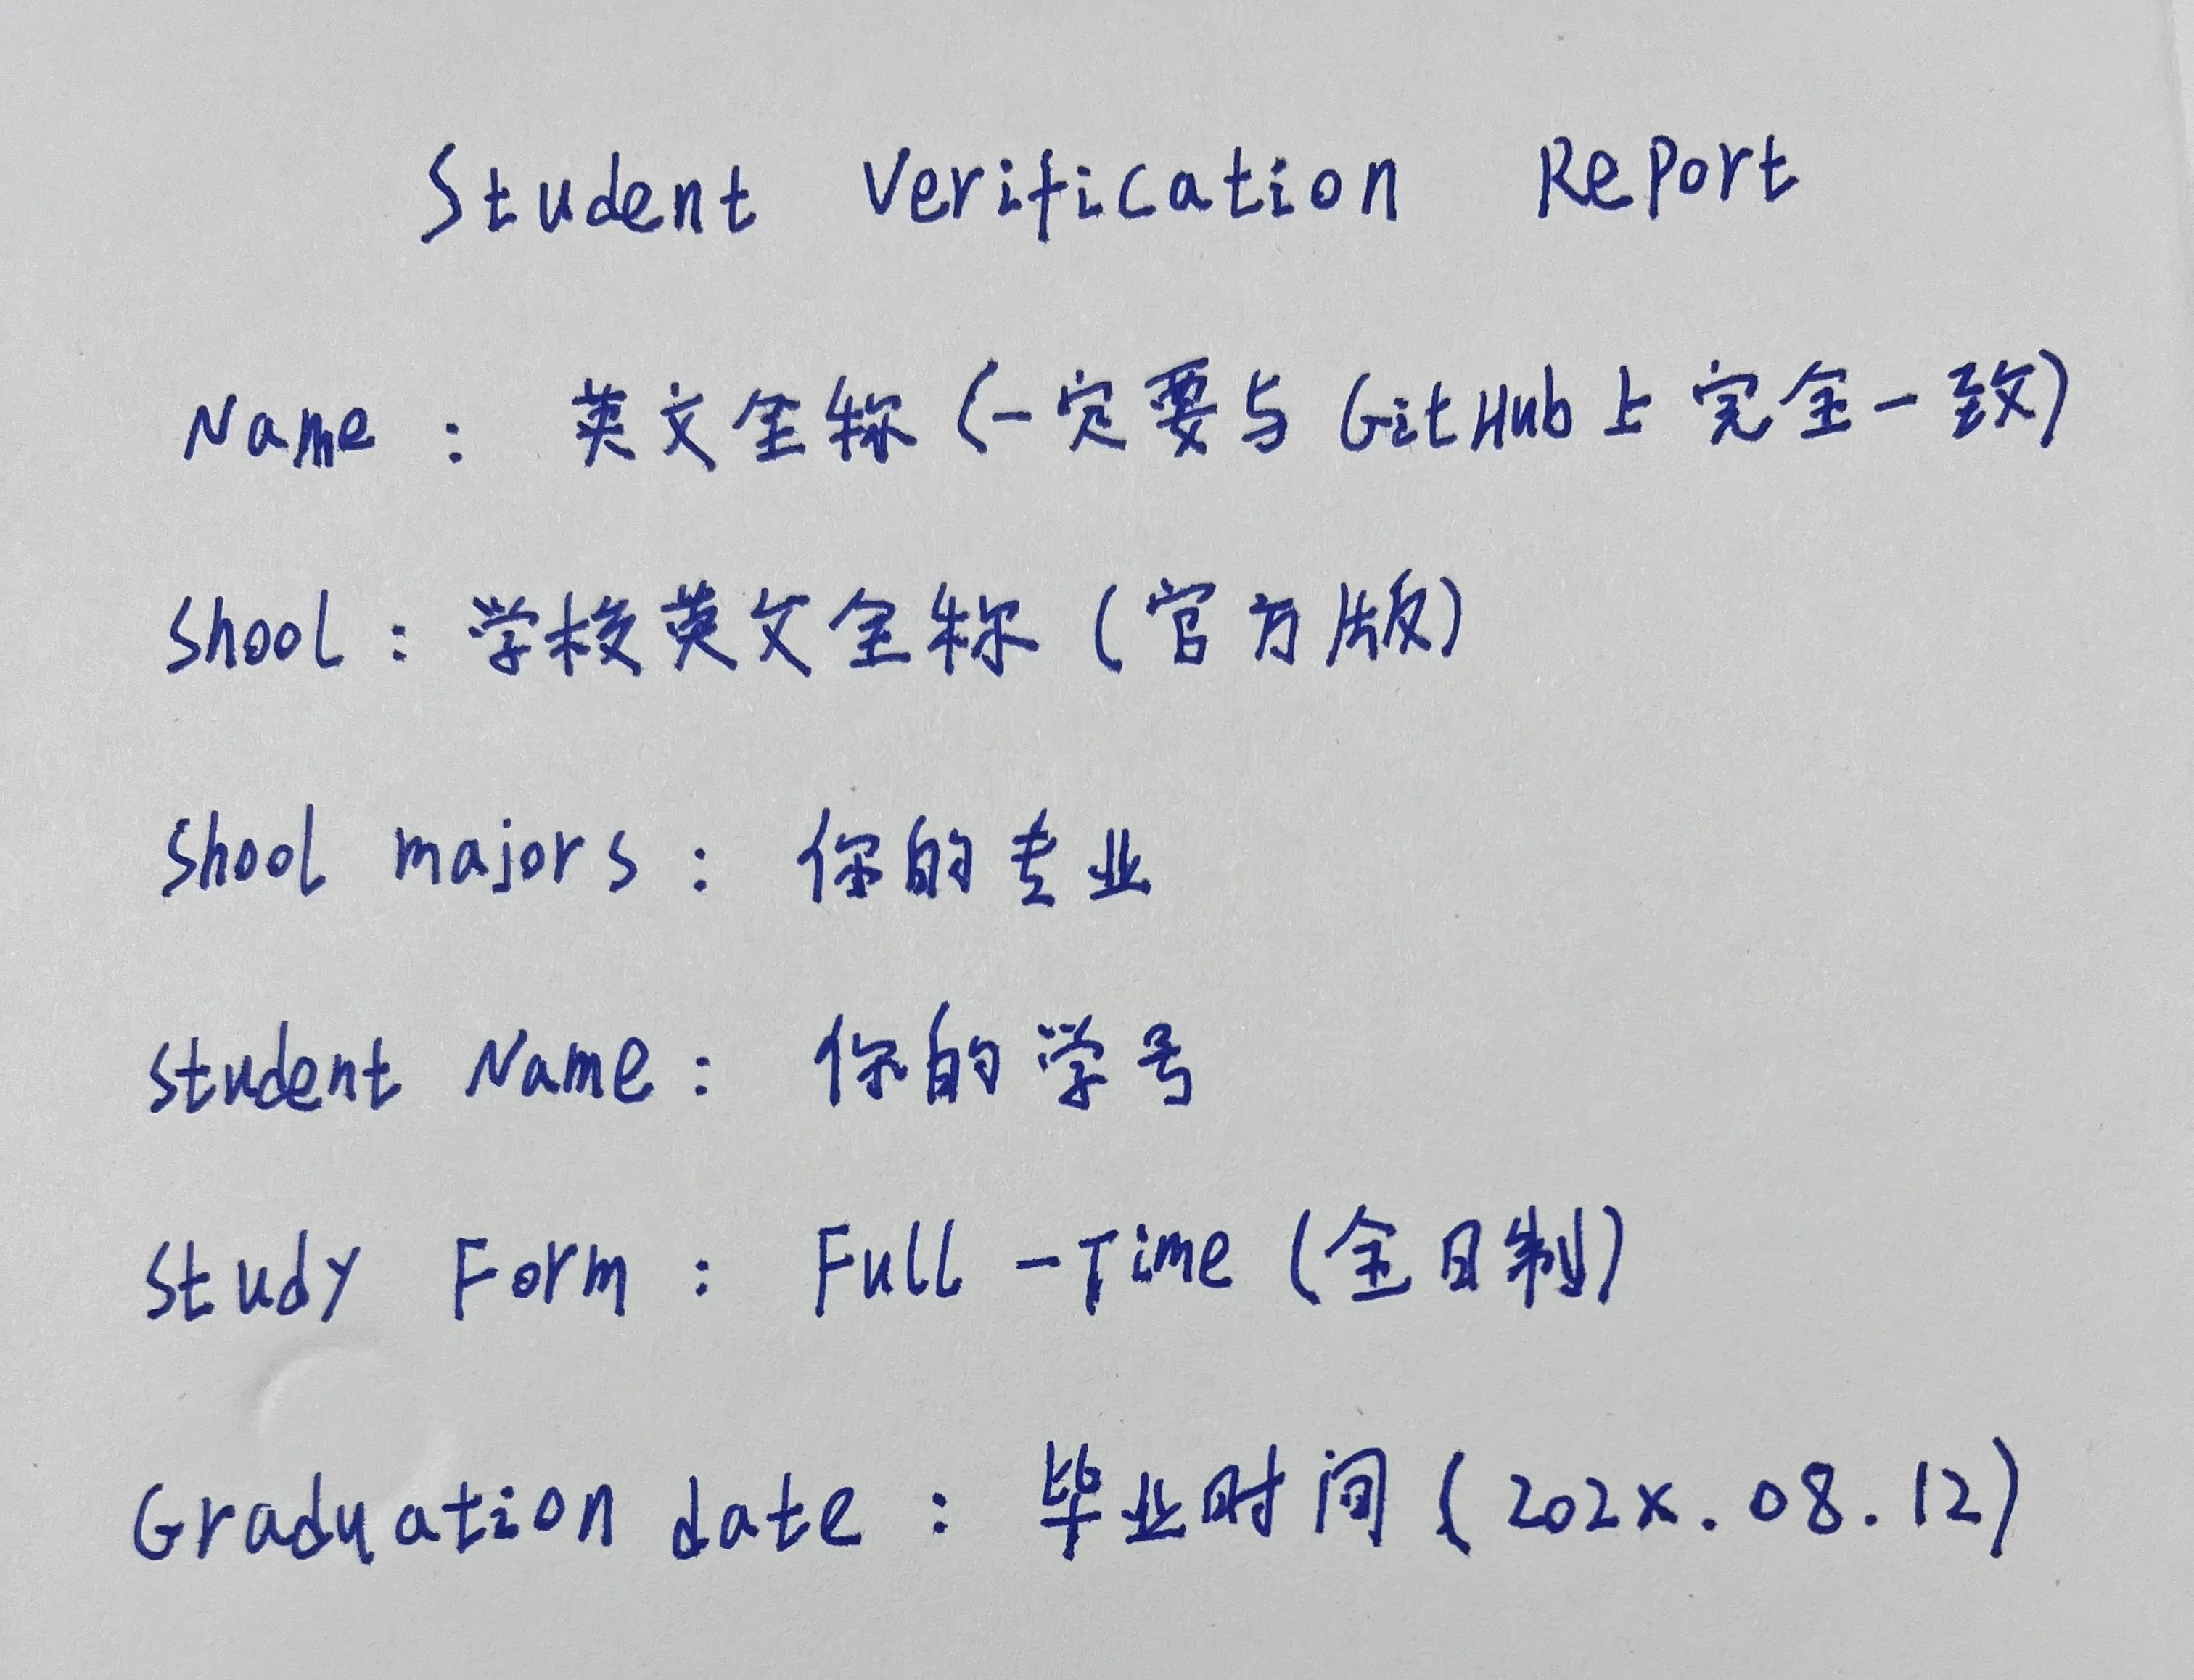 Student Verification Report
Name : 英文全称 (一定要与 GitHub 上完全一致)
Shool : 学校英文全称 (官方版)
Shool majors : 你的专业
Student Name : 你的学号
Study Form : Full -Time (全日制)
Graduation date : 毕业时间 (202x.08.12)